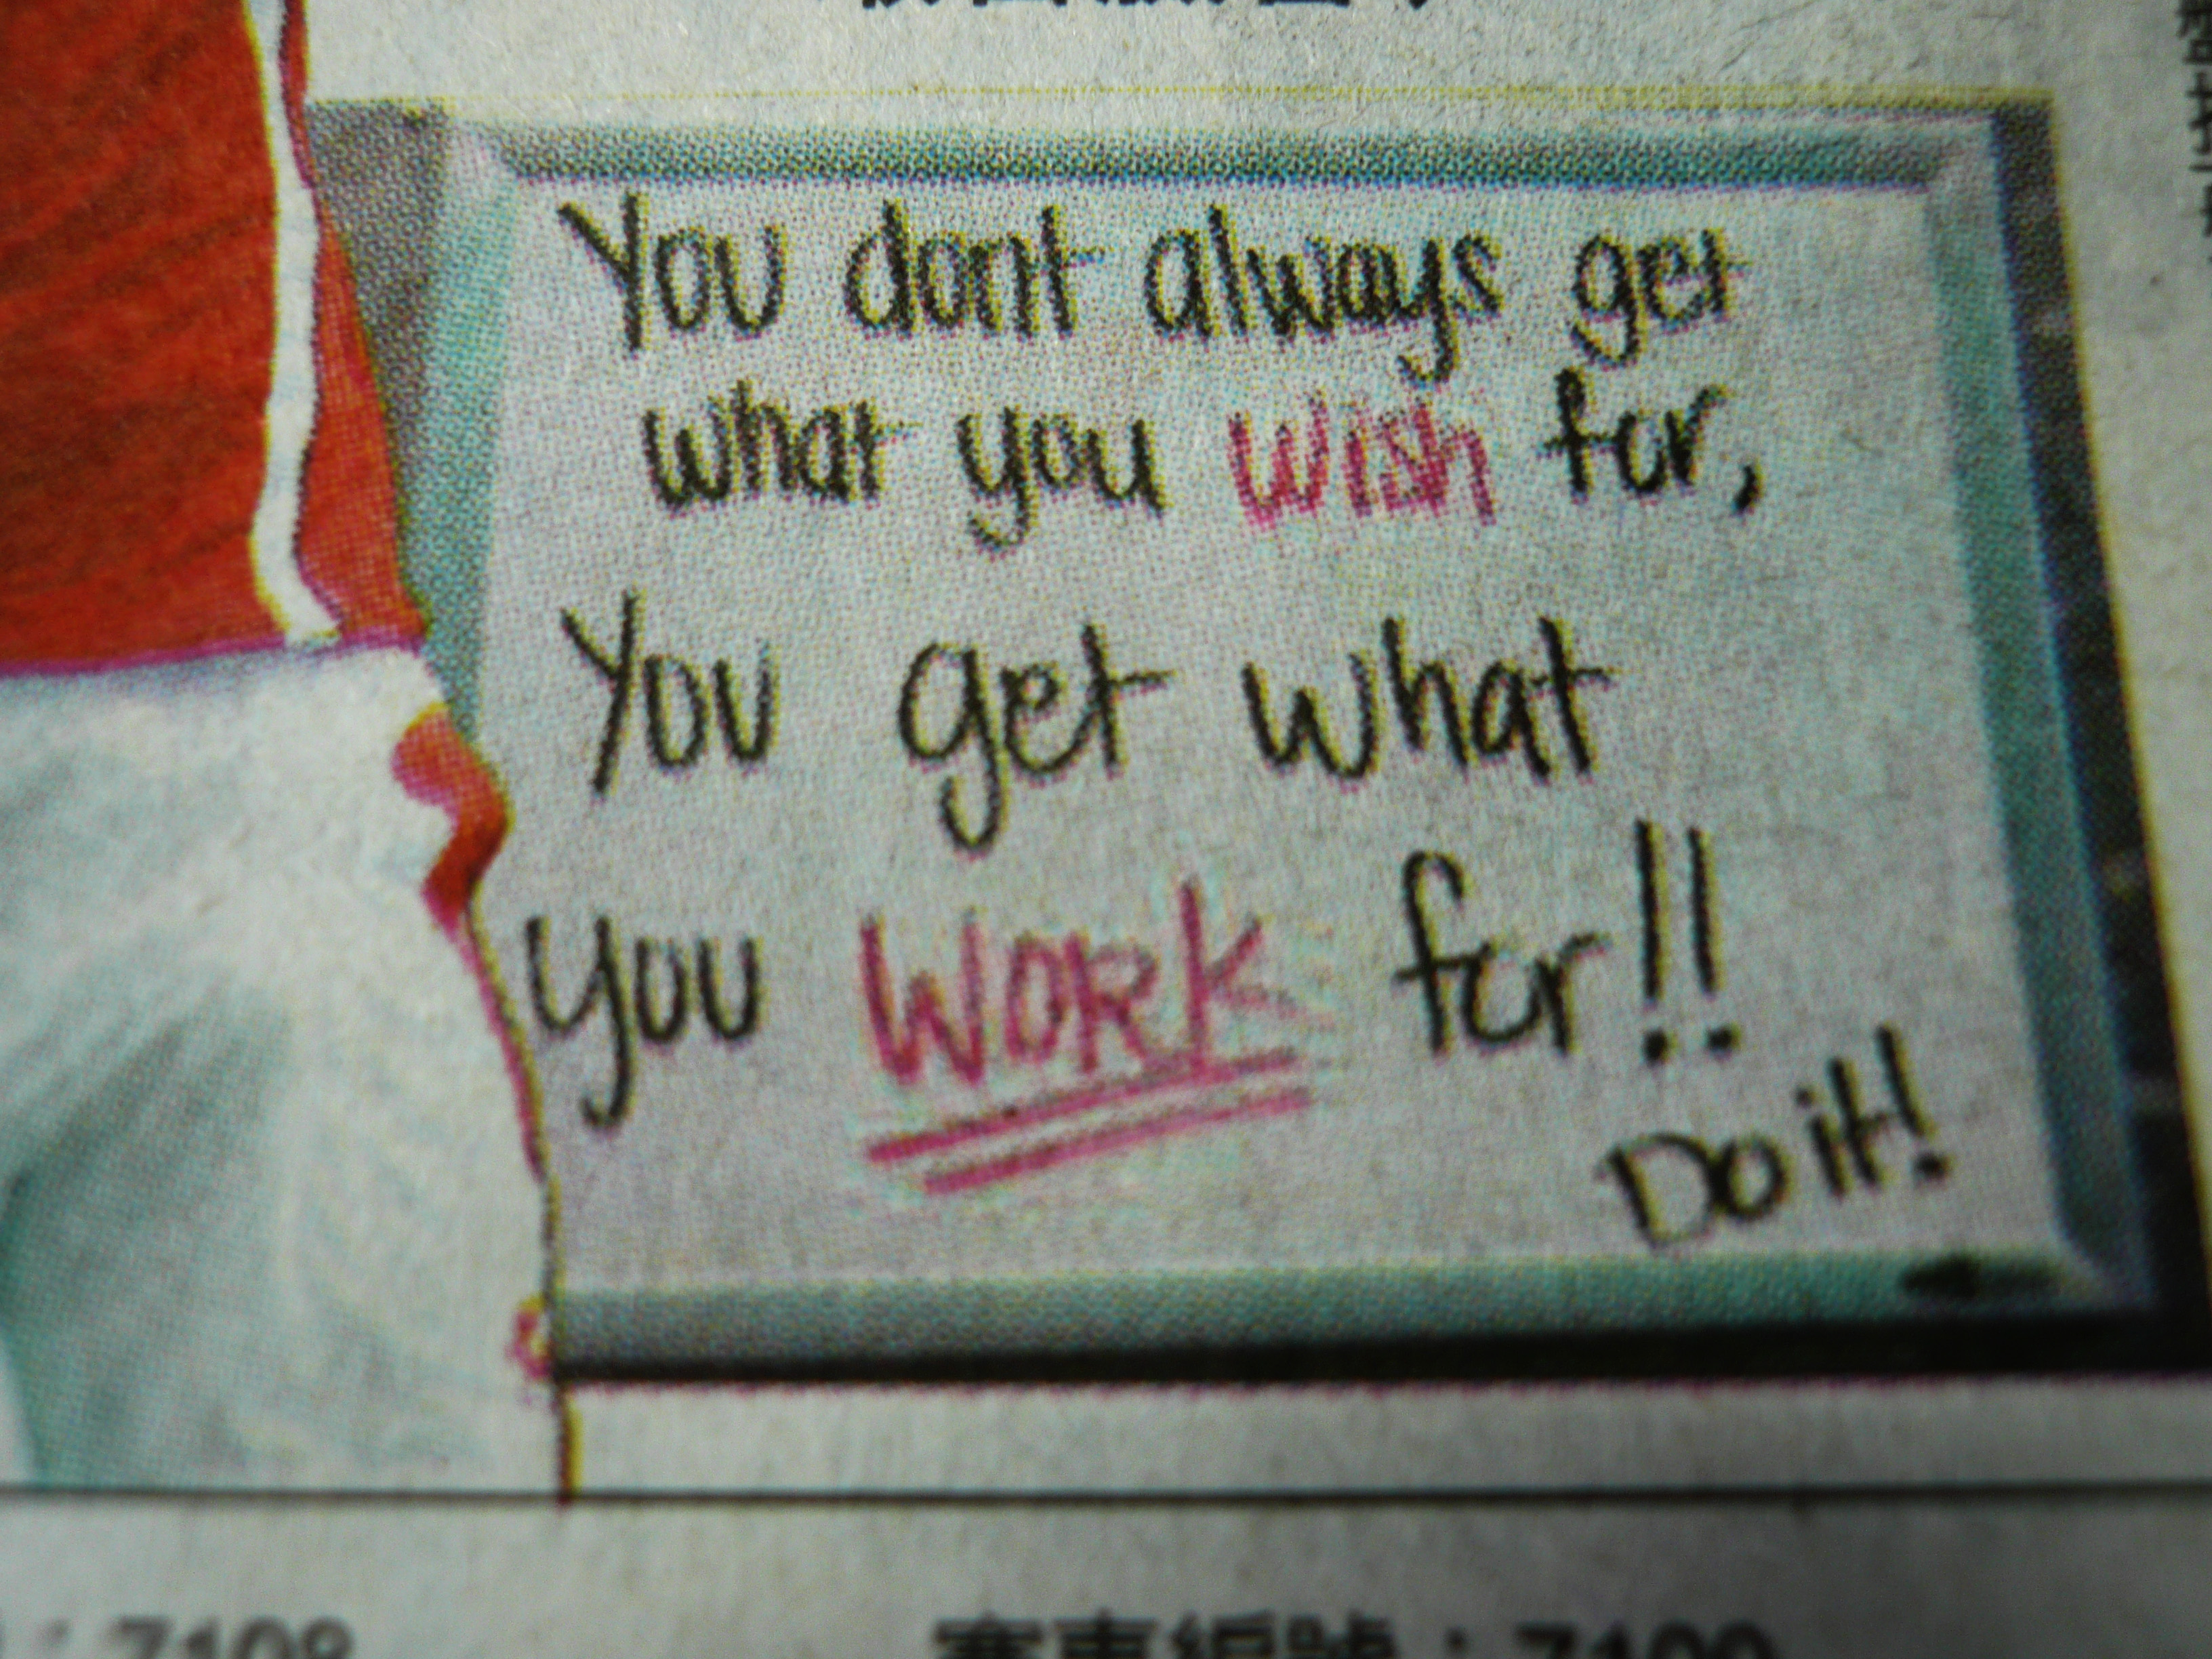 You dont always get
what you wish for,
You get what
you WORK for!!
Do it!
: 7108
賽車編號：7109